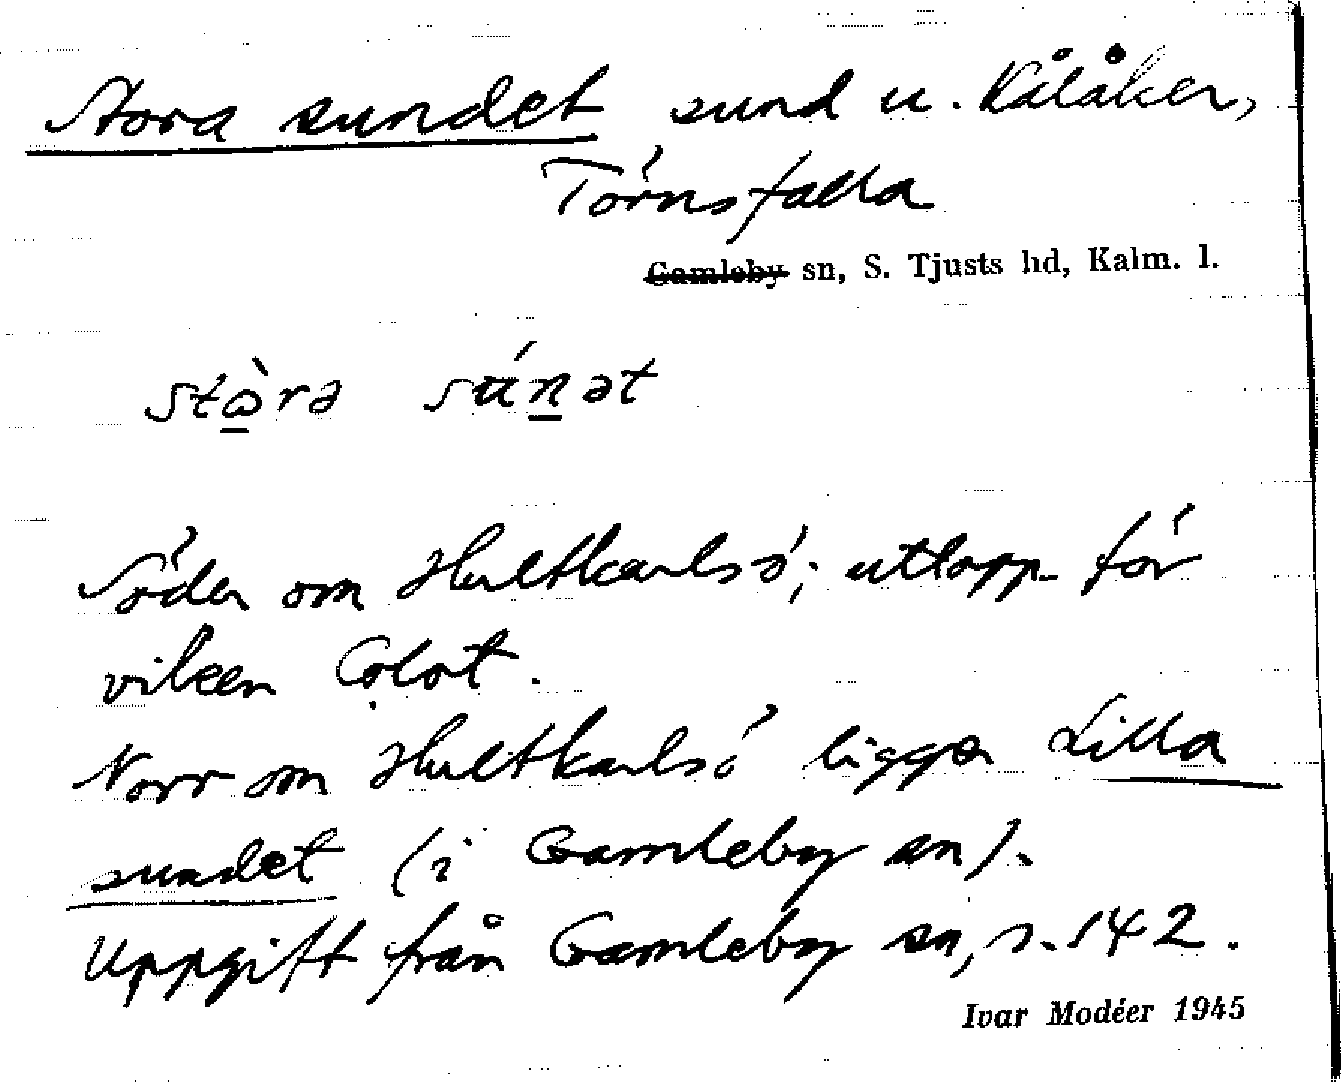 Stora sundet sund u. Kålåker,
Törnsfalla
Gamleby sn, S. Tjusts hd, Kalm. l.
stɷ̀rə súnət
Söder om Hultkarlsö; utlopp för
viken Colot.
Norr om Hultkarlsö ligger Lilla
sundet (i Gamleby sn).
Uppgift från Gamleby sn, s. 142.
Ivar Modéer 1945